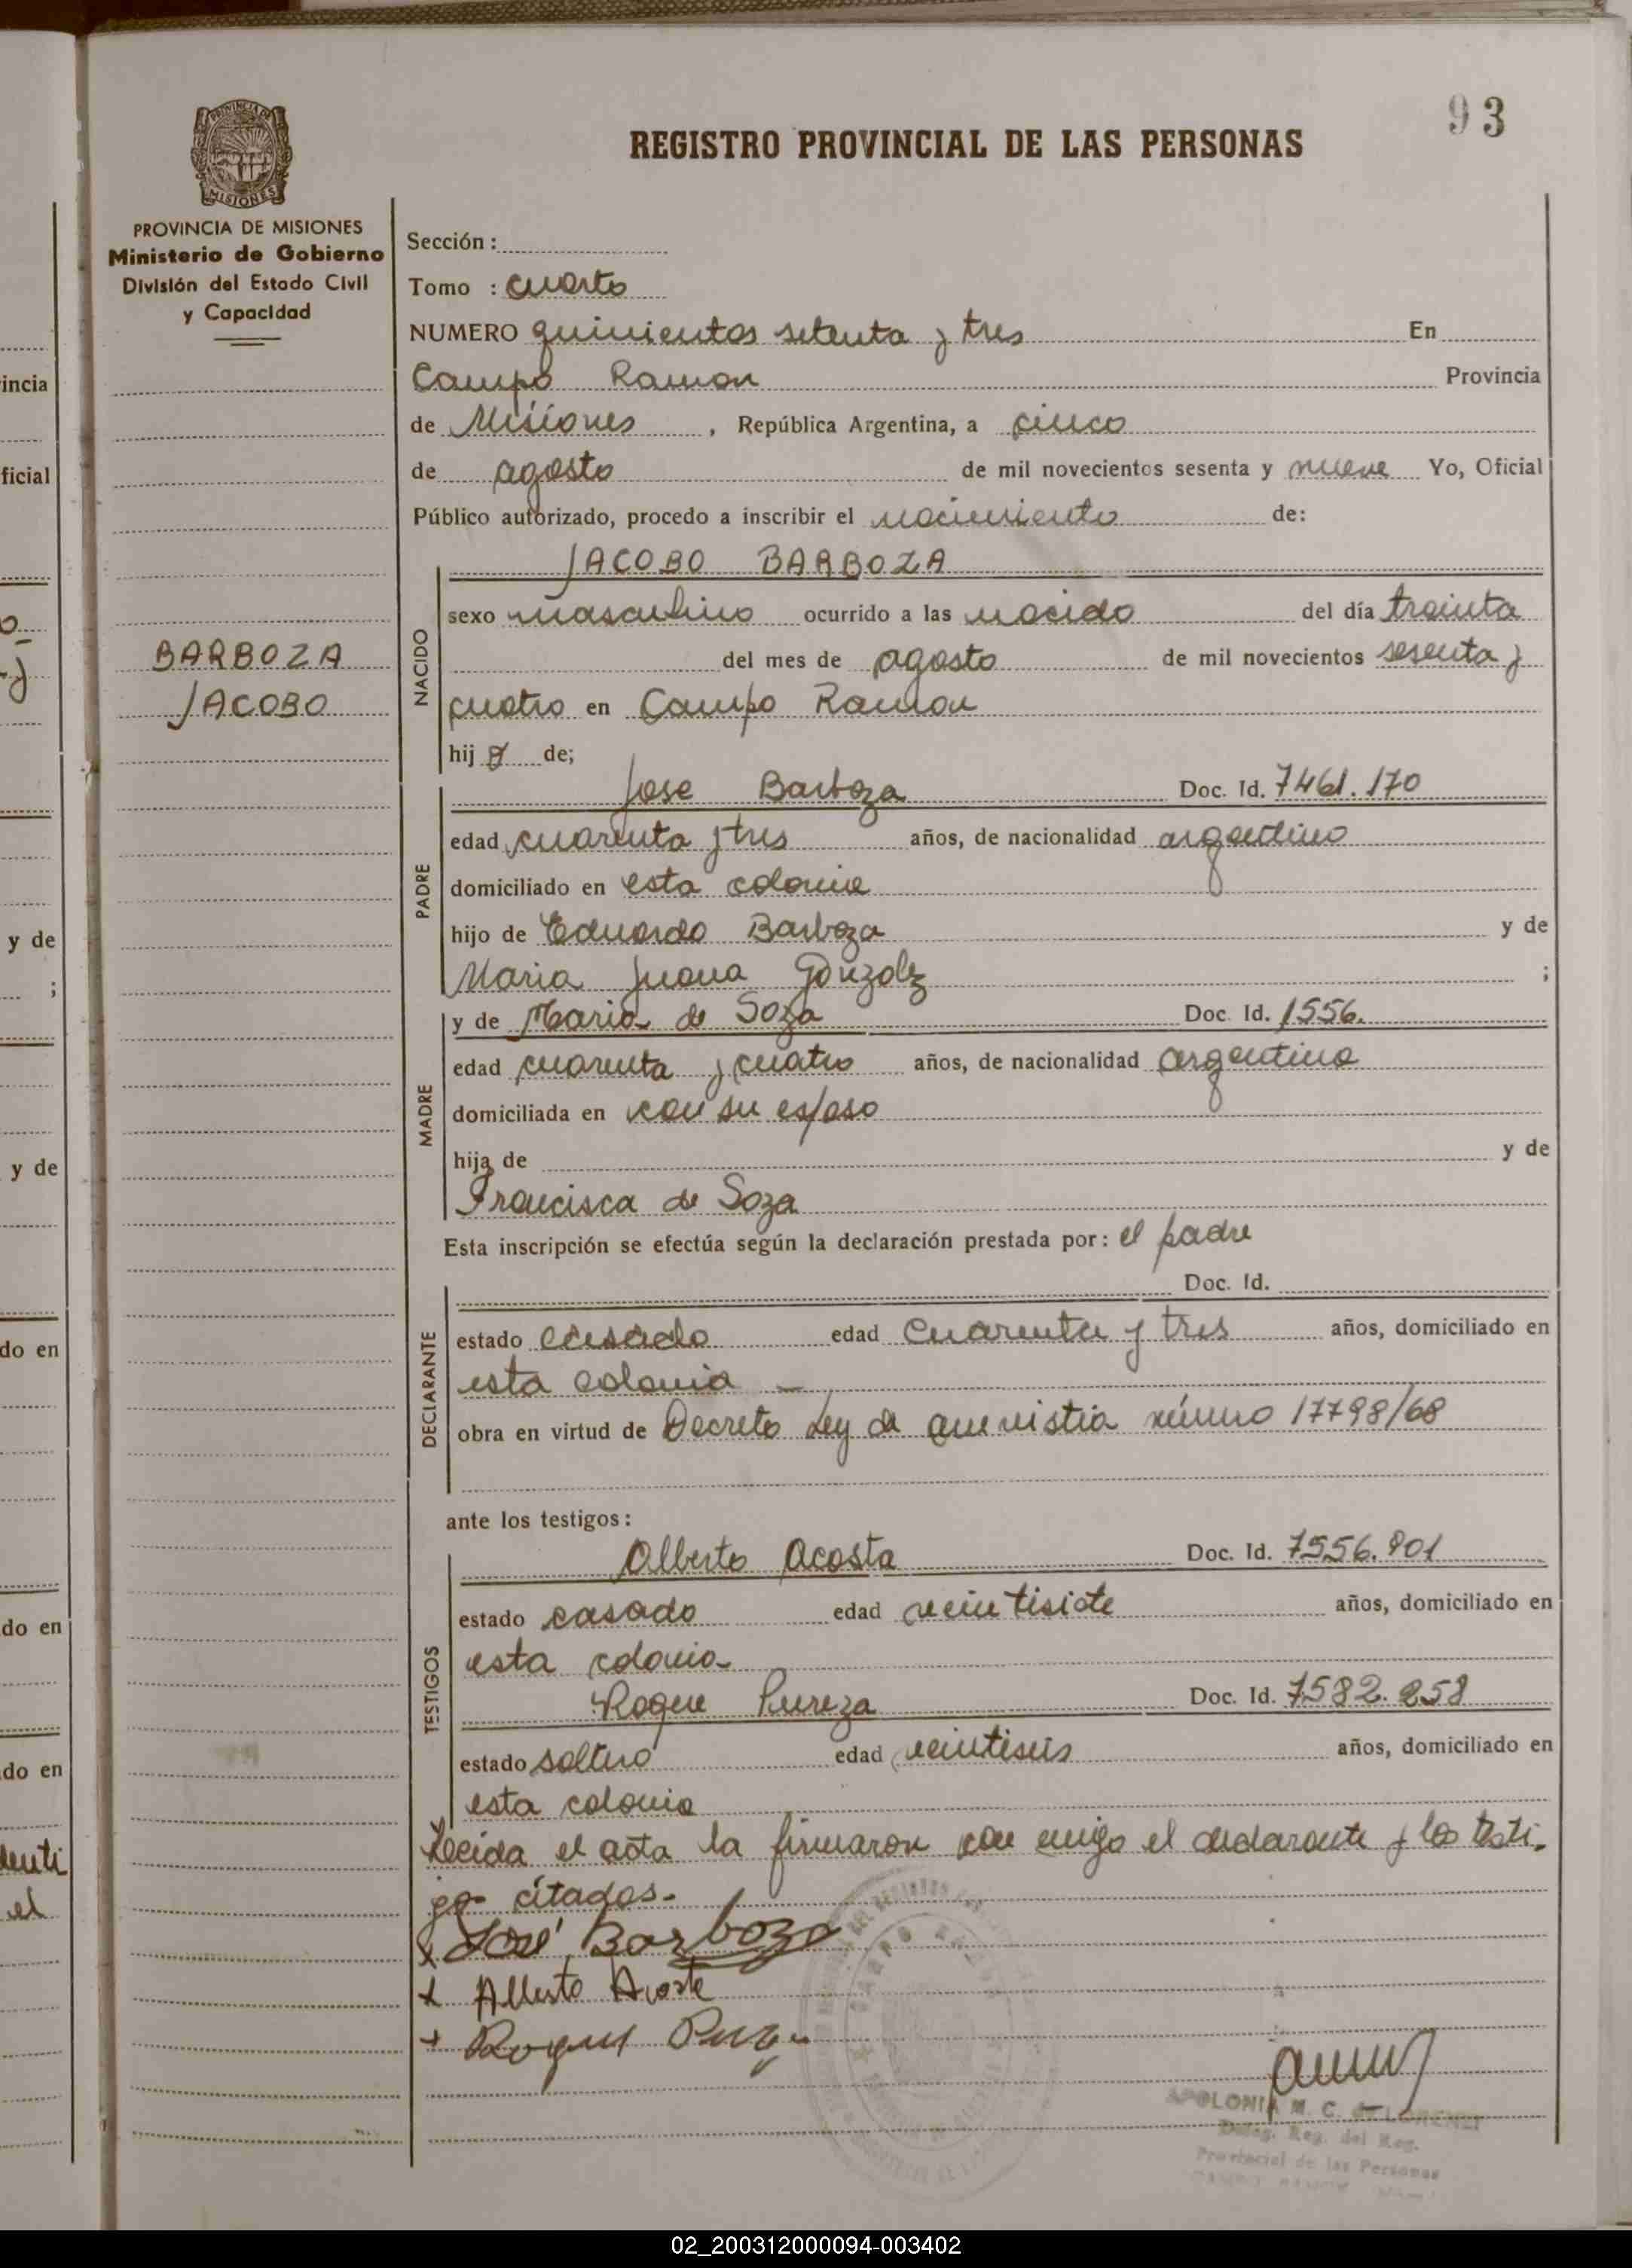 93
REGISTRO PROVINCIAL DE LAS PERSONAS
MISIONES
PROVINCIA DE MISIONES
Ministerio de Gobierno
División del Estado Civil
y Capacidad
BARBOZA
JACOBO
Sección :
Tomo : cuarto
NUMERO quinientos setenta y tres En
Campo Ramon Provincia
de Misiones , República Argentina, a cinco
de agosto de mil novecientos sesenta y nueve Yo, Oficial
Público autorizado, procedo a inscribir el nacimiento de:
NACIDO
JACOBO BARBOZA
sexo masculino ocurrido a las nacido del día treinta
del mes de agosto de mil novecientos sesenta y
cuatro en Campo Ramon
hij o de;
PADRE
Jose Barboza Doc. Id. 7461.170
edad cuarenta y tres años, de nacionalidad argentino
domiciliado en esta colonia
hijo de Eduardo Barboza y de
Maria Juana Gonzalez ;
MADRE
y de Maria de Soza Doc. Id. 1556.
edad cuarenta y cuatro años, de nacionalidad argentina
domiciliada en con su esposo
hija de y de
Francisca de Soza
Esta inscripción se efectúa según la declaración prestada por: el padre
DECLARANTE
Doc. Id.
estado casado edad cuarenta y tres años, domiciliado en
esta colonia -
obra en virtud de Decreto Ley de amnistia número 17798/68
ante los testigos:
TESTIGOS
Alberto Acosta Doc. Id. 7556.901
estado casado edad veintisiete años, domiciliado en
esta colonia
Roque Pereza Doc. Id. 7582.258
estado soltero edad veintiseis años, domiciliado en
esta colonia
Leeida el acta la firmaron con migo el declarante y los testi-
gos citados.-
x José Barboza
x Alberto Acosta
x Roque
APOLONIA M. C.
Deleg. Reg. del Reg.
Provincial de las Personas
incia
ficial
y de
;
y de
do en
do en
do en
el
02_200312000094-003402